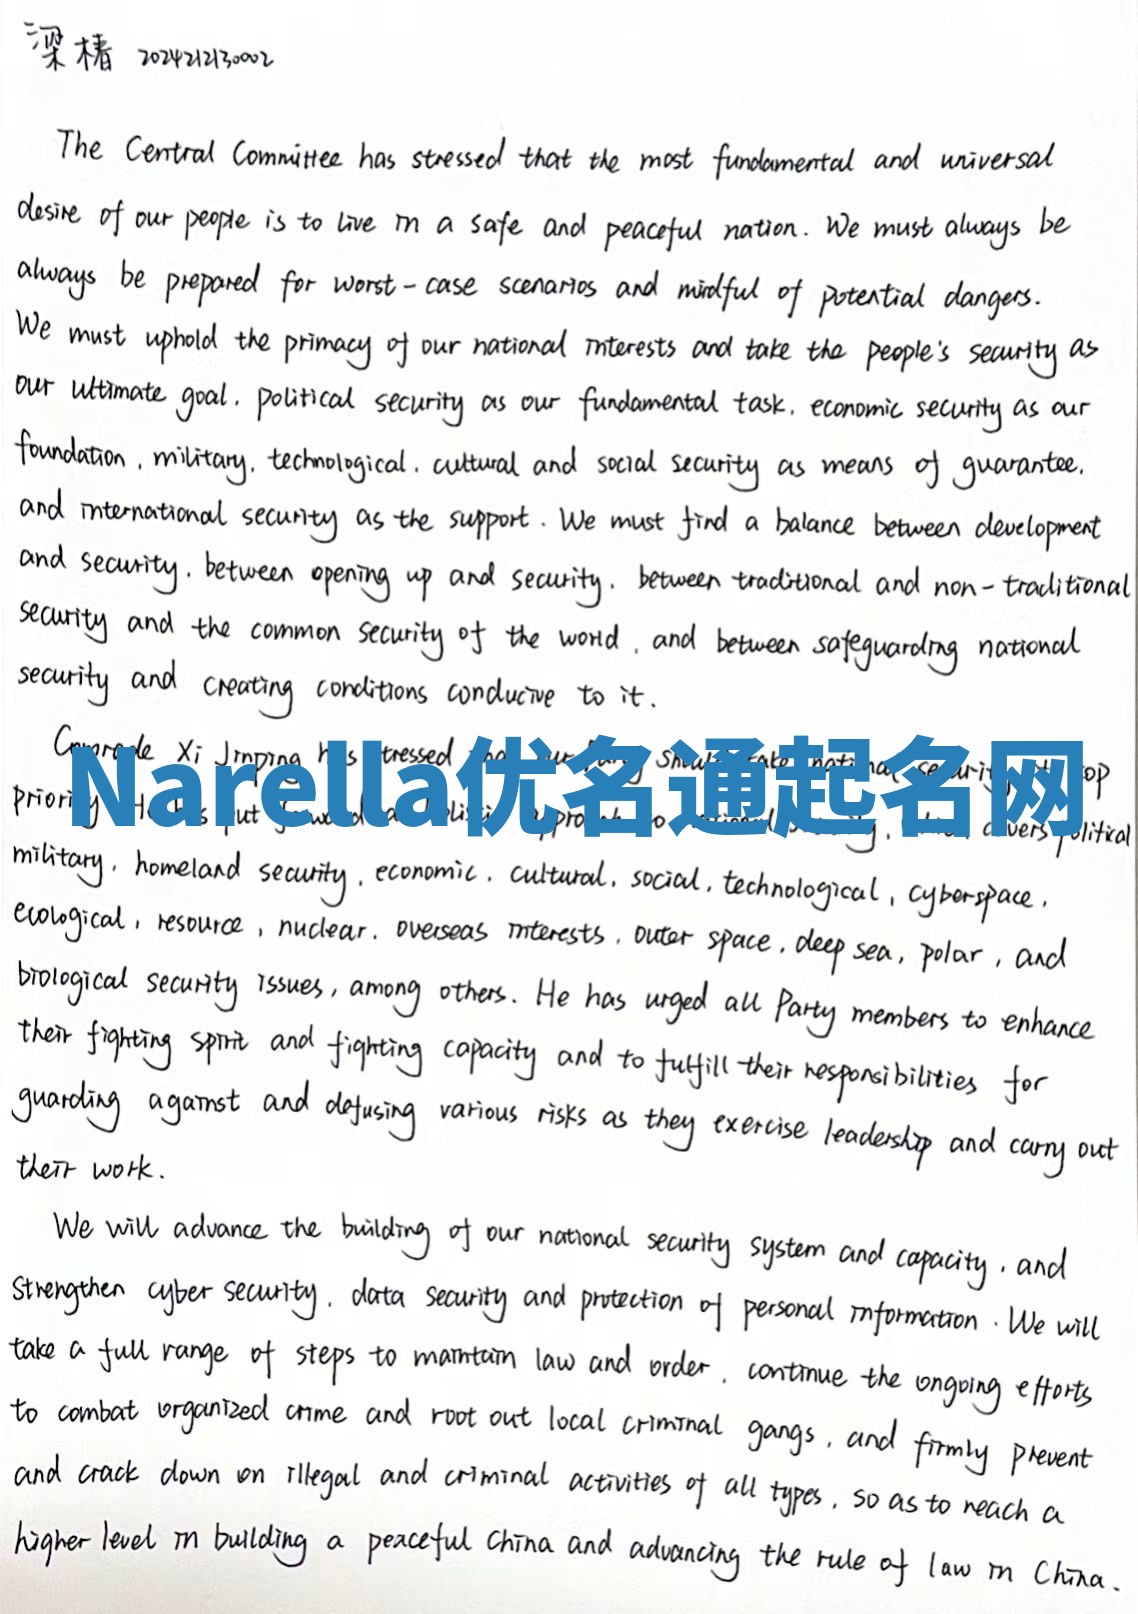 梁椿 2024212130002
The Central Committee has stressed that the most fundamental and universal
desire of our people is to live in a safe and peaceful nation. We must always be
always be prepared for worst-case scenarios and mindful of potential dangers.
We must uphold the primacy of our national interests and take the people's security as
our ultimate goal, political security as our fundamental task, economic security as our
foundation, military, technological, cultural and social security as means of guarantee,
and international security as the support. We must find a balance between development
and security, between opening up and security, between traditional and non-traditional
security and the common security of the world, and between safeguarding national
security and creating conditions conducive to it.
Comrade Xi Jinping has stressed national security top
Narella优名通起名网
priority put approach covers political
military, homeland security, economic, cultural, social, technological, cyberspace,
ecological, resource, nuclear, overseas interests, outer space, deep sea, polar, and
biological security issues, among others. He has urged all Party members to enhance
their fighting spirit and fighting capacity and to fulfill their responsibilities for
guarding against and defusing various risks as they exercise leadership and carry out
their work.
We will advance the building of our national security system and capacity, and
strengthen cyber security, data security and protection of personal information. We will
take a full range of steps to maintain law and order, continue the ongoing efforts
to combat organized crime and root out local criminal gangs, and firmly prevent
and crack down on illegal and criminal activities of all types, so as to reach a
higher level in building a peaceful China and advancing the rule of law in China.